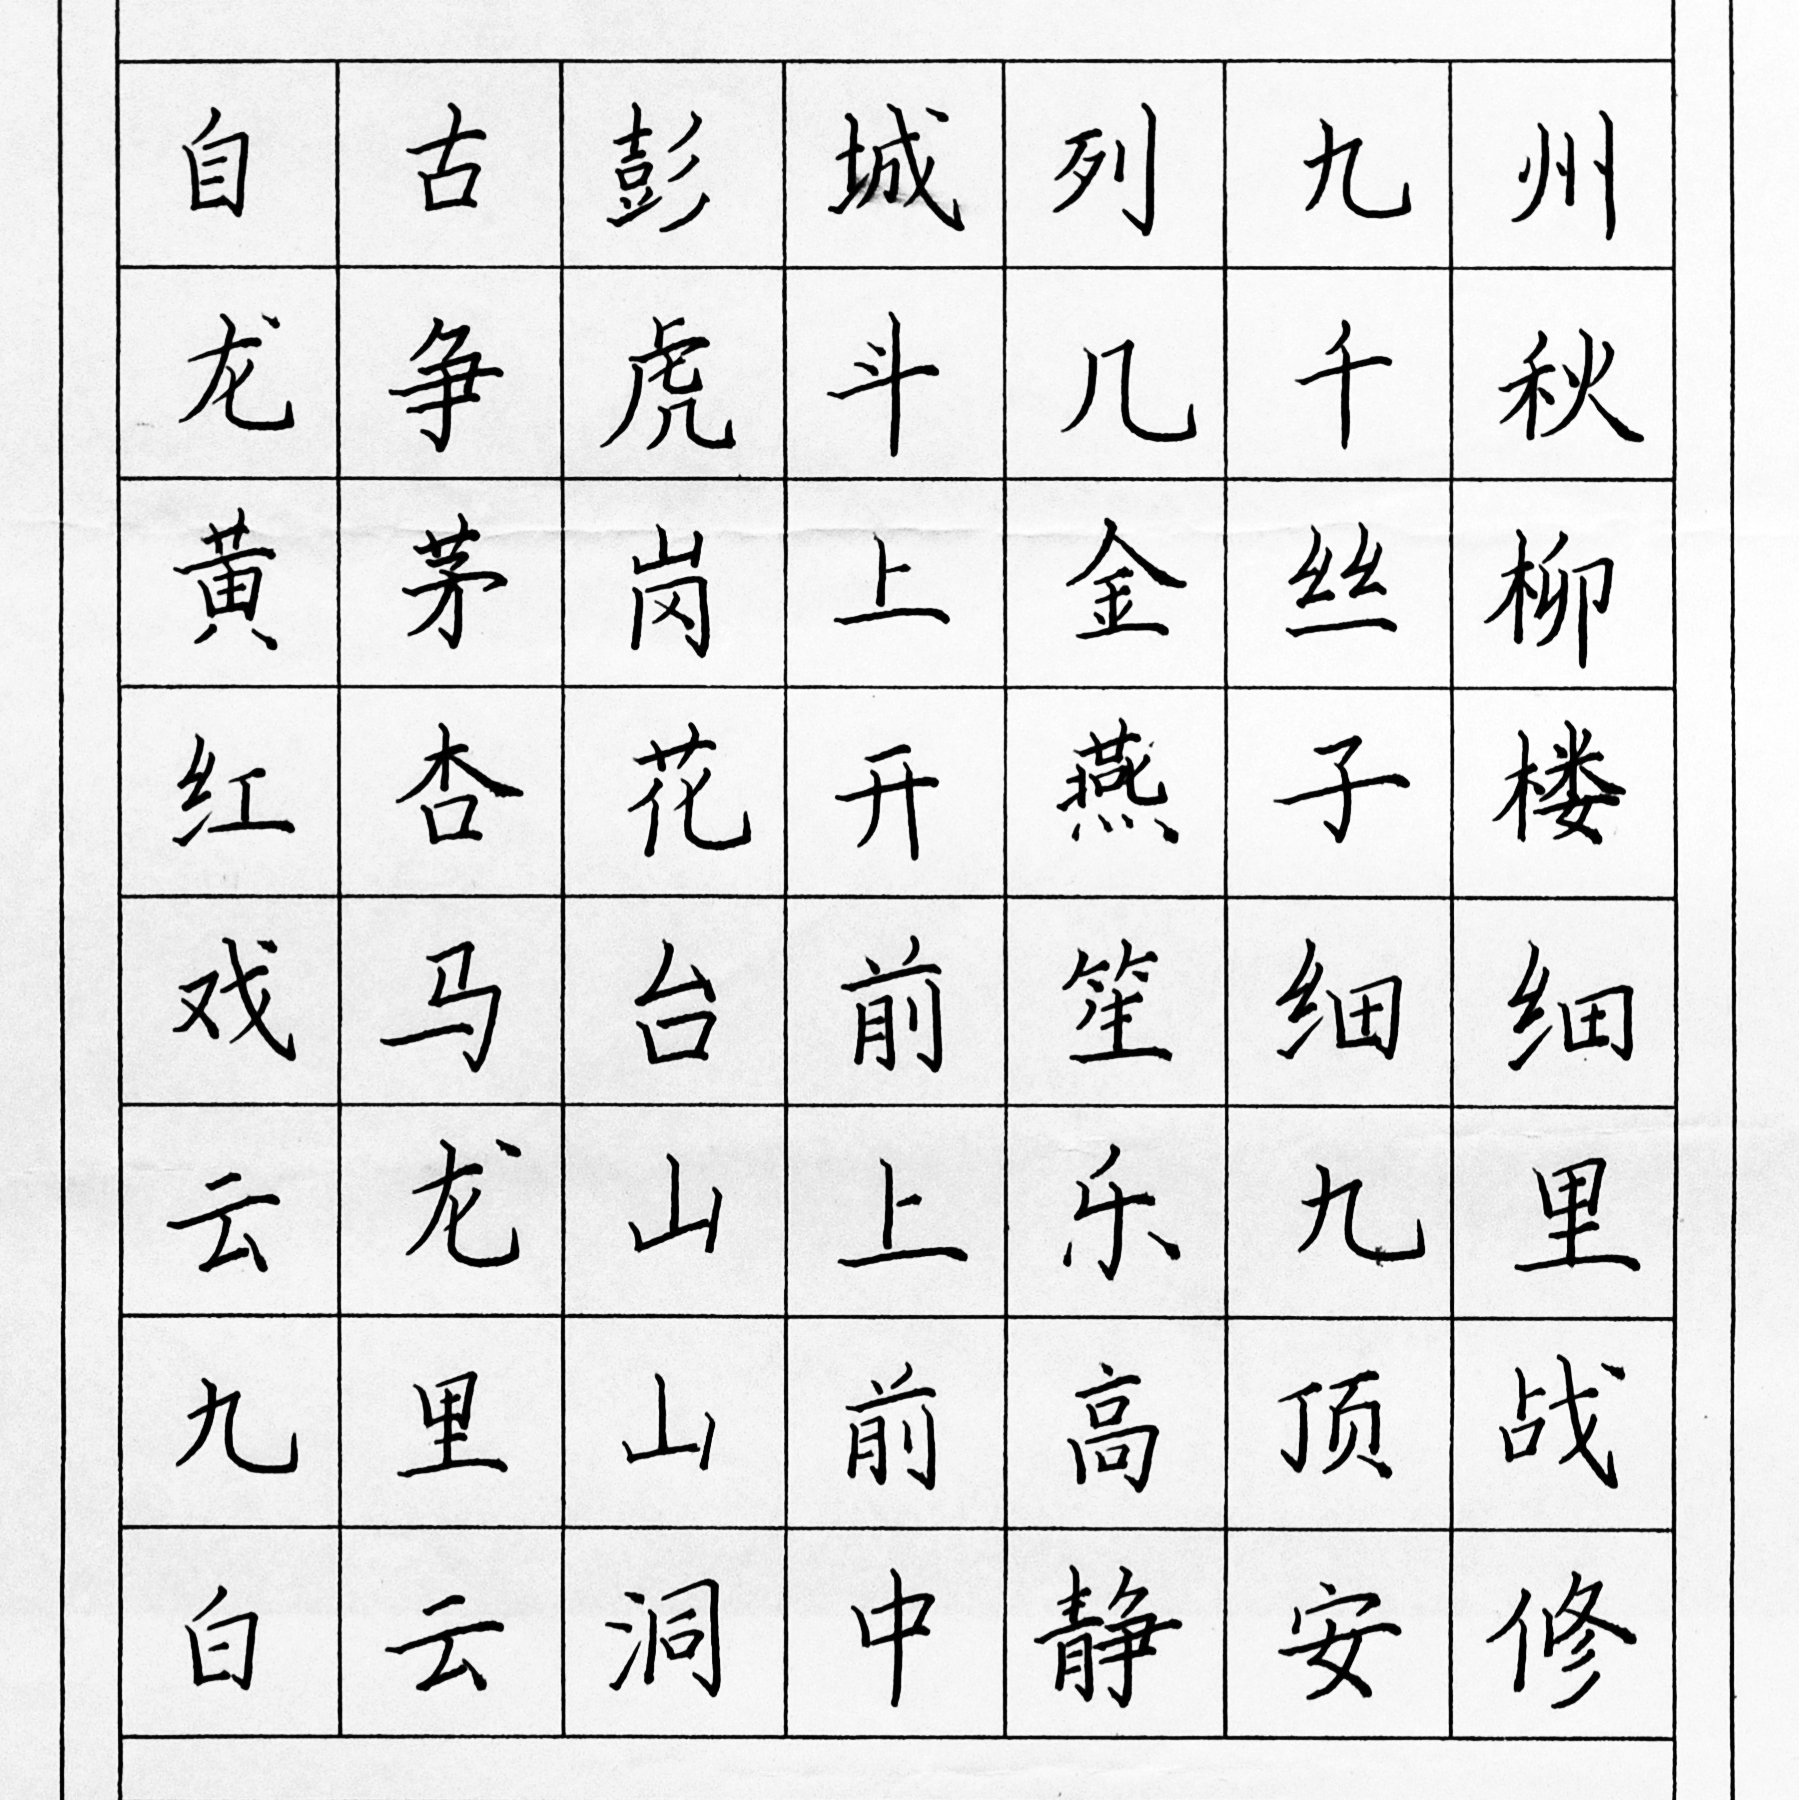 自古彭城列九州
龙争虎斗几千秋
黄茅岗上金丝柳
红杏花开燕子楼
戏马台前笙细细
云龙山上乐九里
九里山前高顶战
白云洞中静安修